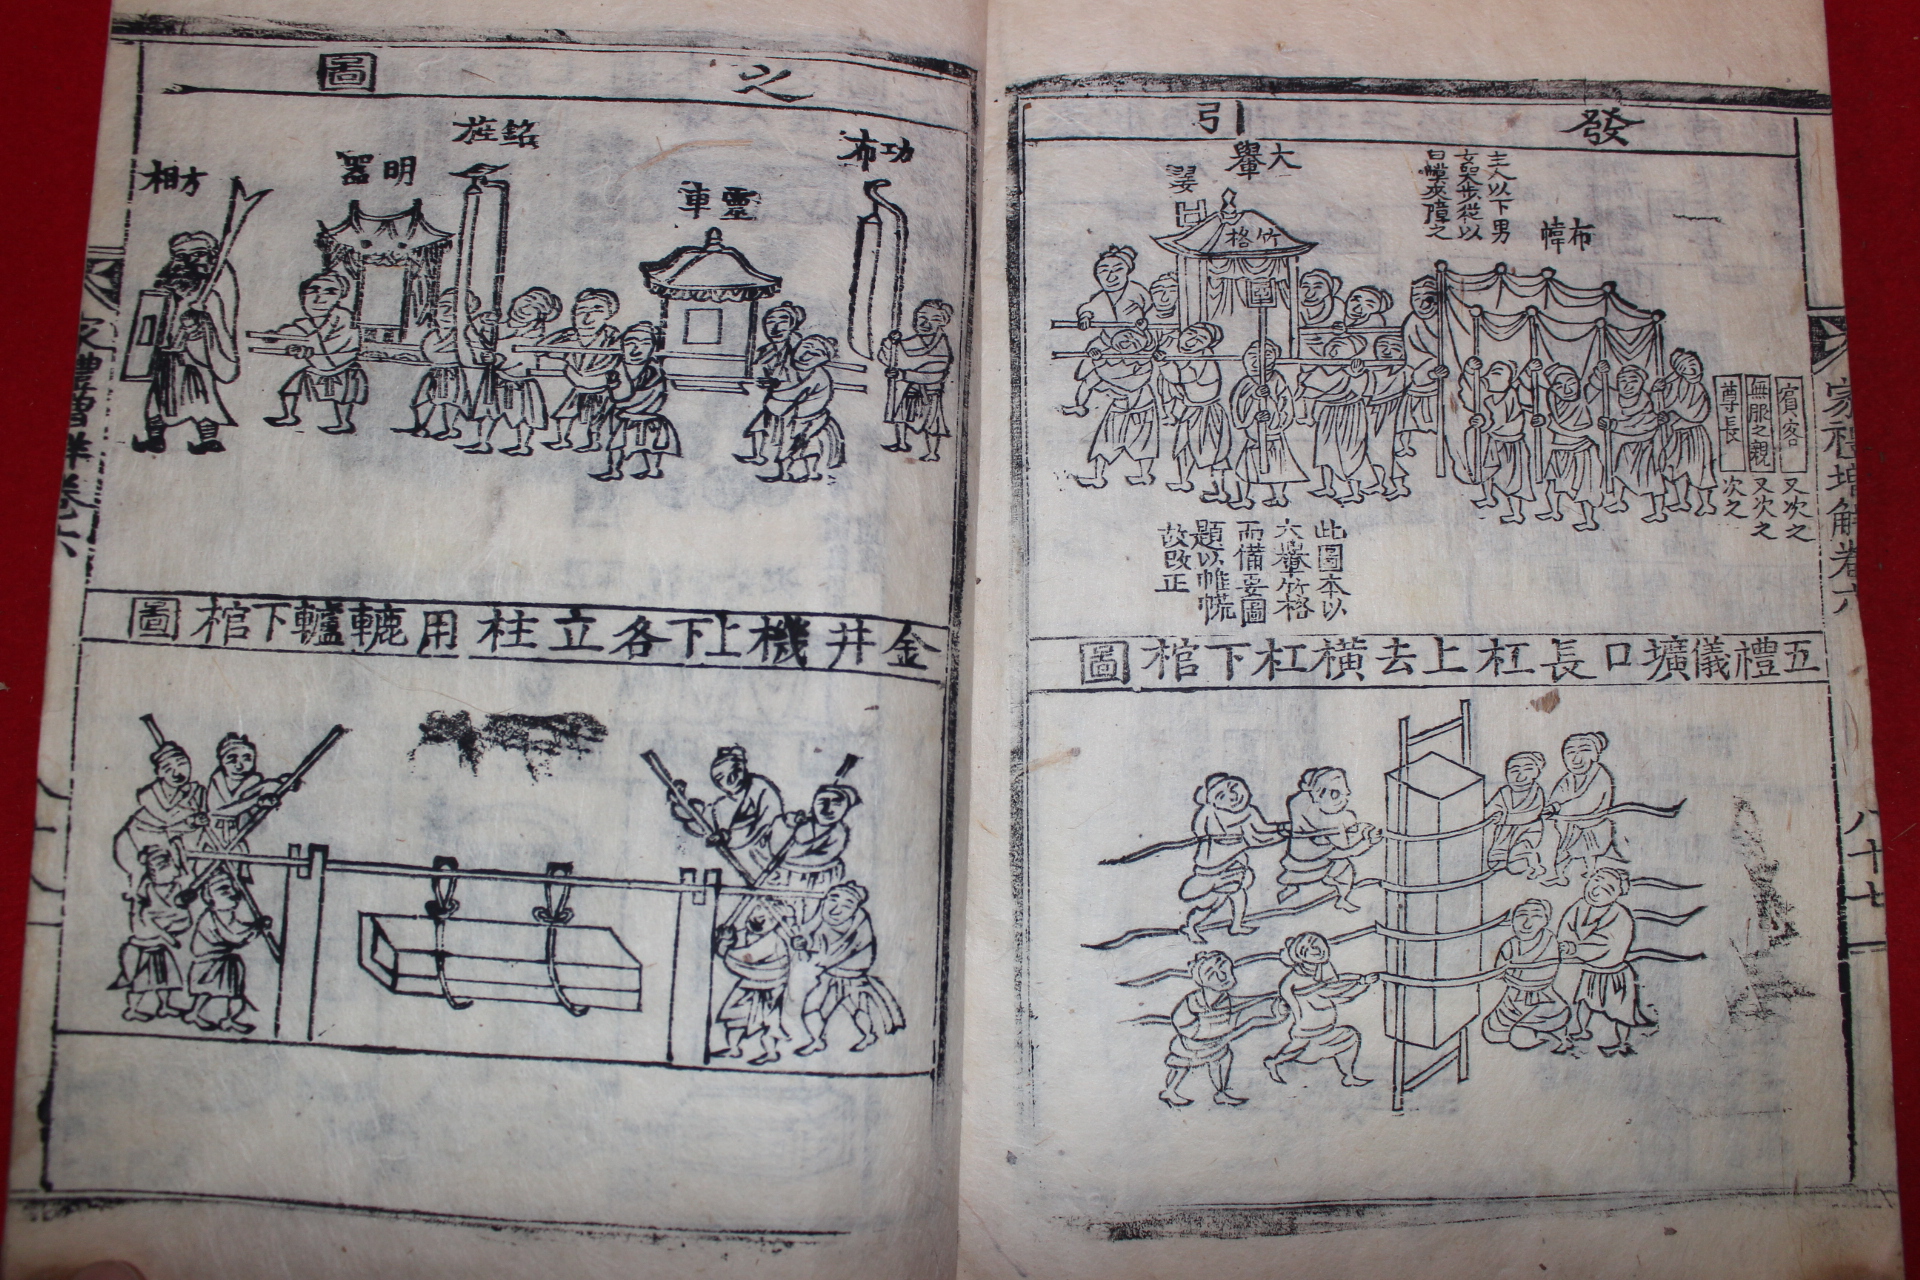 發引
之圖
主人以下男
女哭步從以
白幕夾障之
布幃
大轝
翣
竹格
賓客又次之
無服之親又次之
尊長次之
此圖本以
大轝竹格
而備要圖
題以帷㡆
故改正
五禮儀壙口長杠上去橫杠下棺圖
家禮增解卷六
八十七
功布
靈車
銘旌
明器
方相
金井機上下各立柱用轆轤下棺圖